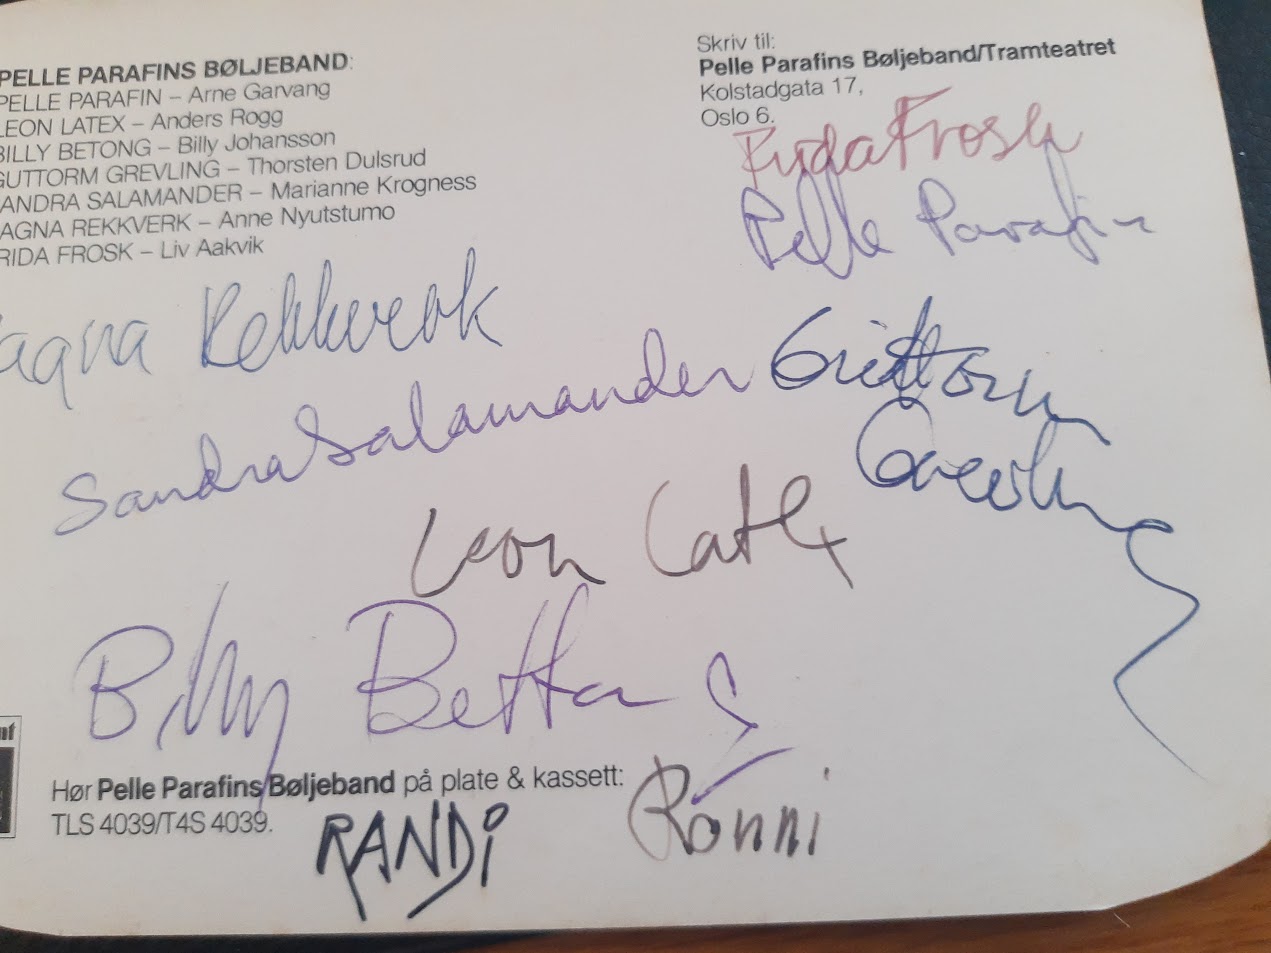 PELLE PARAFINS BØLJEBAND:
PELLE PARAFIN – Arne Garvang
LEON LATEX – Anders Rogg
BILLY BETONG – Billy Johansson
GUTTORM GREVLING – Thorsten Dulsrud
ANDRA SALAMANDER – Marianne Krogness
AGNA REKKVERK – Anne Nyutstumo
RIDA FROSK – Liv Aakvik
Skriv til:
Pelle Parafins Bøljeband/Tramteatret
Kolstadgata 17,
Oslo 6.
Frida Frosk
Pelle Parafin
agna Rekkverk
Sandra Salamander
Guttorm
Grevling
Leon Latex
Billy Betong
Hør Pelle Parafins Bøljeband på plate & kassett:
TLS 4039/T4S 4039.
RANDi
Ronni